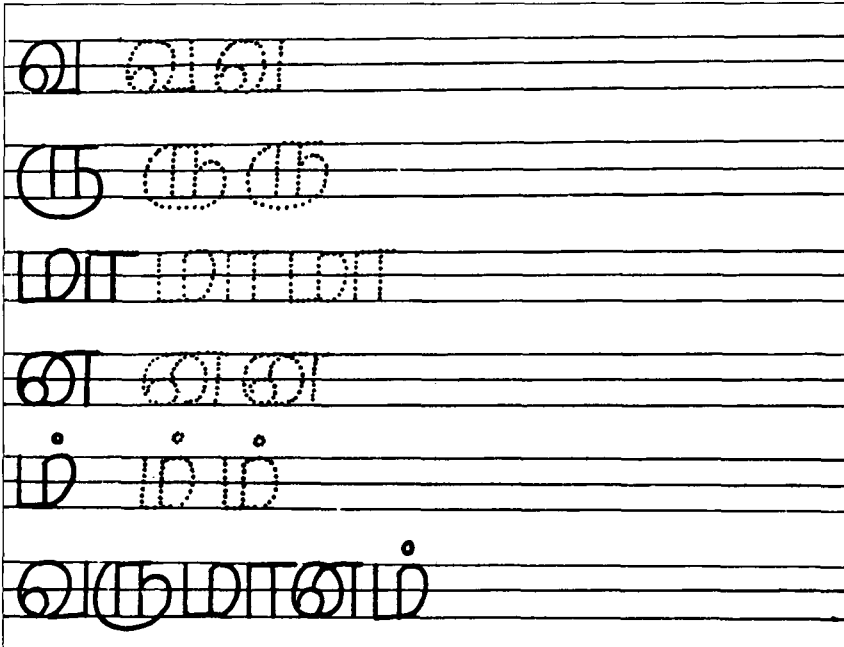 வ வ வ
ரு ரு ரு
மா மா மா
ன ன ன
ம் ம் ம்
வருமானம்